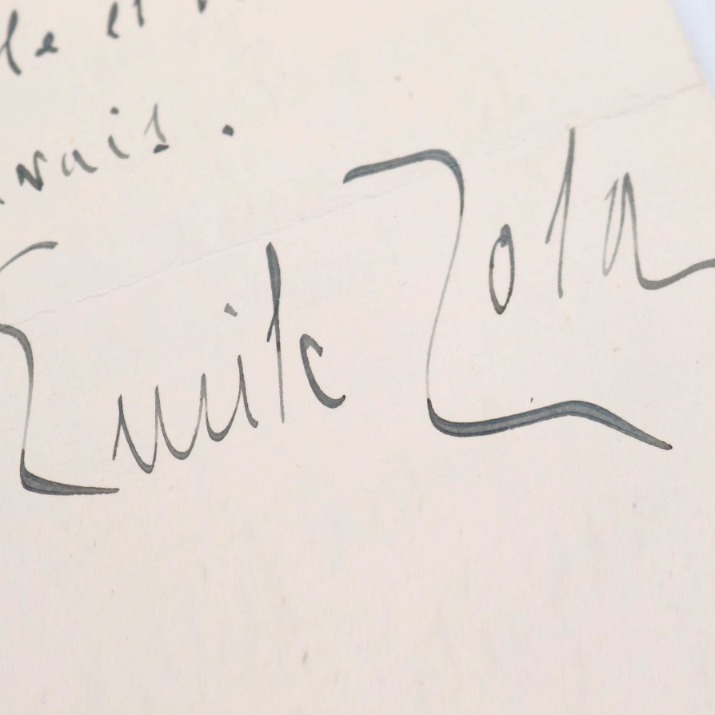 le et
vais.
Emile Zola